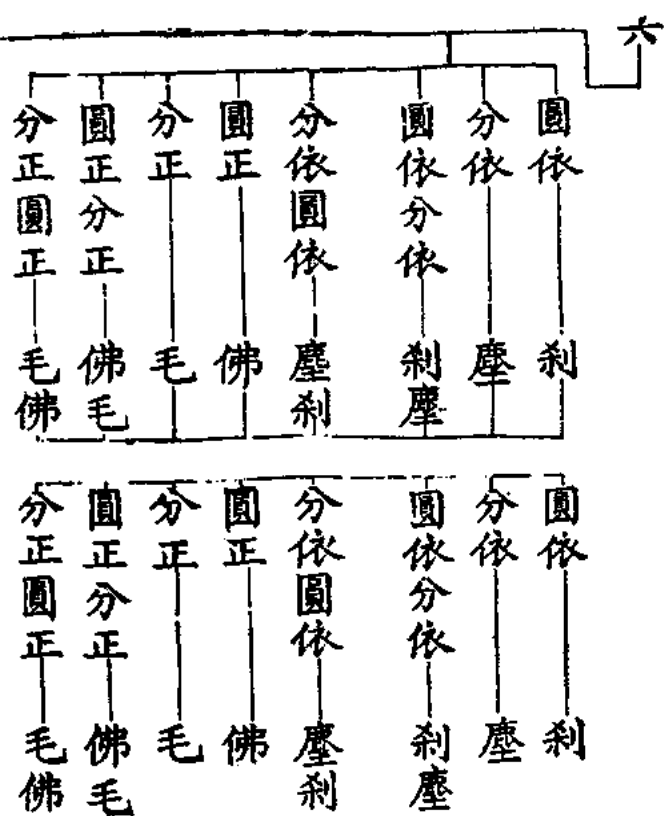 六
圓依 刹
分依 塵
圓依分依 刹塵
分依圓依 塵刹
圓正 佛
分正 毛
圓正分正 佛毛
分正圓正 毛佛
圓依 刹
分依 塵
圓依分依 刹塵
分依圓依 塵刹
圓正 佛
分正 毛
圓正分正 佛毛
分正圓正 毛佛